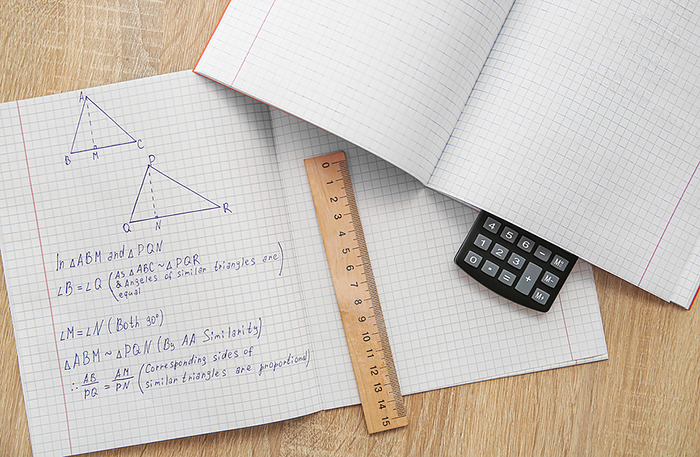 A
B M C
D
Q N R
In △ABM and △PQN
∠B = ∠Q (As △ABC ~ △PQR
& Angeles of similar triangles are
equal)
∠M = ∠N (Both 90°)
△ABM ~ △PQN (By AA Similarity)
∴ AB/PQ = AM/PN (Corresponding sides of
similar triangles are proportional)
0 1 2 3 4 5 6 7 8 9 10 11 12 13 14 15
4 5 6 −
1 2 3 + M-
0 • = M+